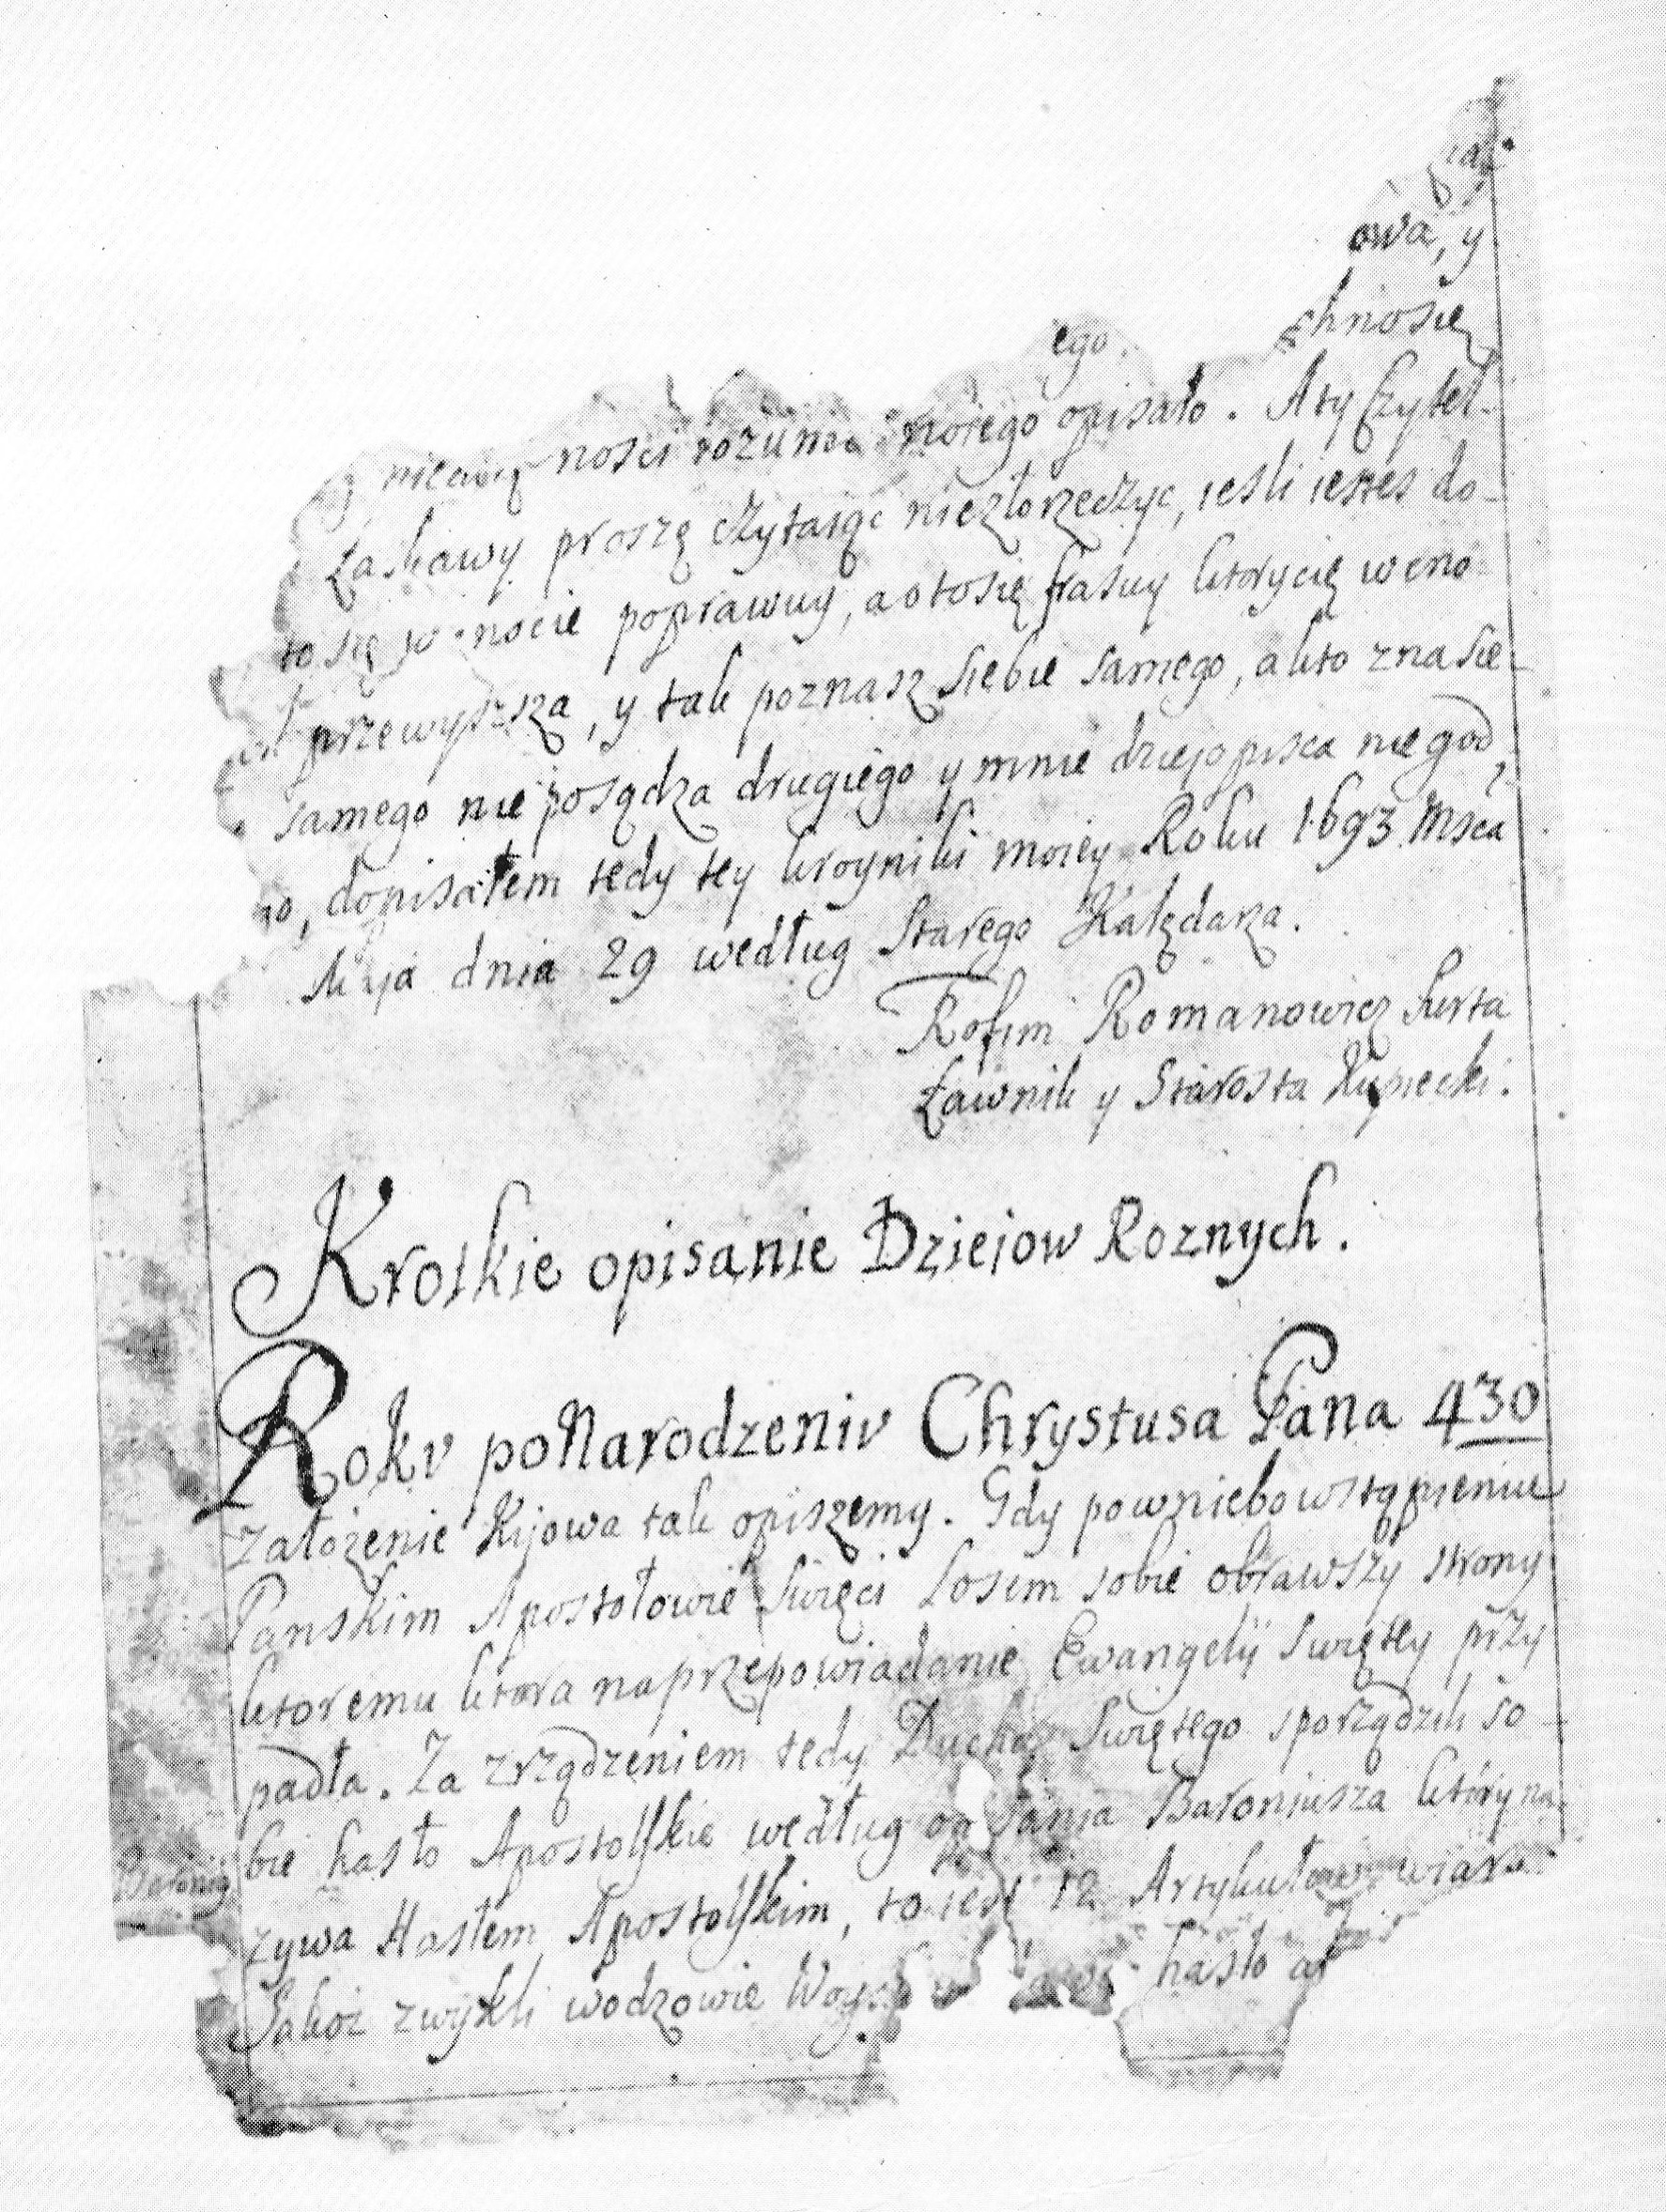 owa, y
chnosię
ego.
nosci rozumu moiego opisało. Aty Czytel-
Łaskawy proszę czytaiąc niezłorzeczyc, iesli iestes do-
to się w nocie poprawuy, a oto się frasuy ktorycię wcno
przewyszsza, y tak poznasz siebie samego, a kto zna sie-
samego nie posądza drugiego y mnie dziejopisca niegod,
no, dopisałem tedy tey kroyniki moiey Roku 1693 Msca
Maja dnia 29 według Starego Kalędarza.
Rofim Romanowicz Surta
Ławnik y Starosta Kupiecki.
Krotkie opisanie Dzieiow Roznych.
Rokv poNarodzeniv Chrystusa Pana 430
Założenie Kijowa tak opiszemy. Gdy powniebowstąpieniu
Panskim Apostołowie Swięci Losem sobie obrawszy strony
ktoremu ktora na przepowiadanie Ewangelij swiętey przy
padła. Za zrządzeniem tedy Ducha Swiętego sporządzili so-
bie hasło Apostolskie według Baroniusza ktory na-
Baroniq
zywa Hasłem Apostolskim, to iest 12 Artykułow wiary
Jakoż zwykli wodzowie Woysk hasło